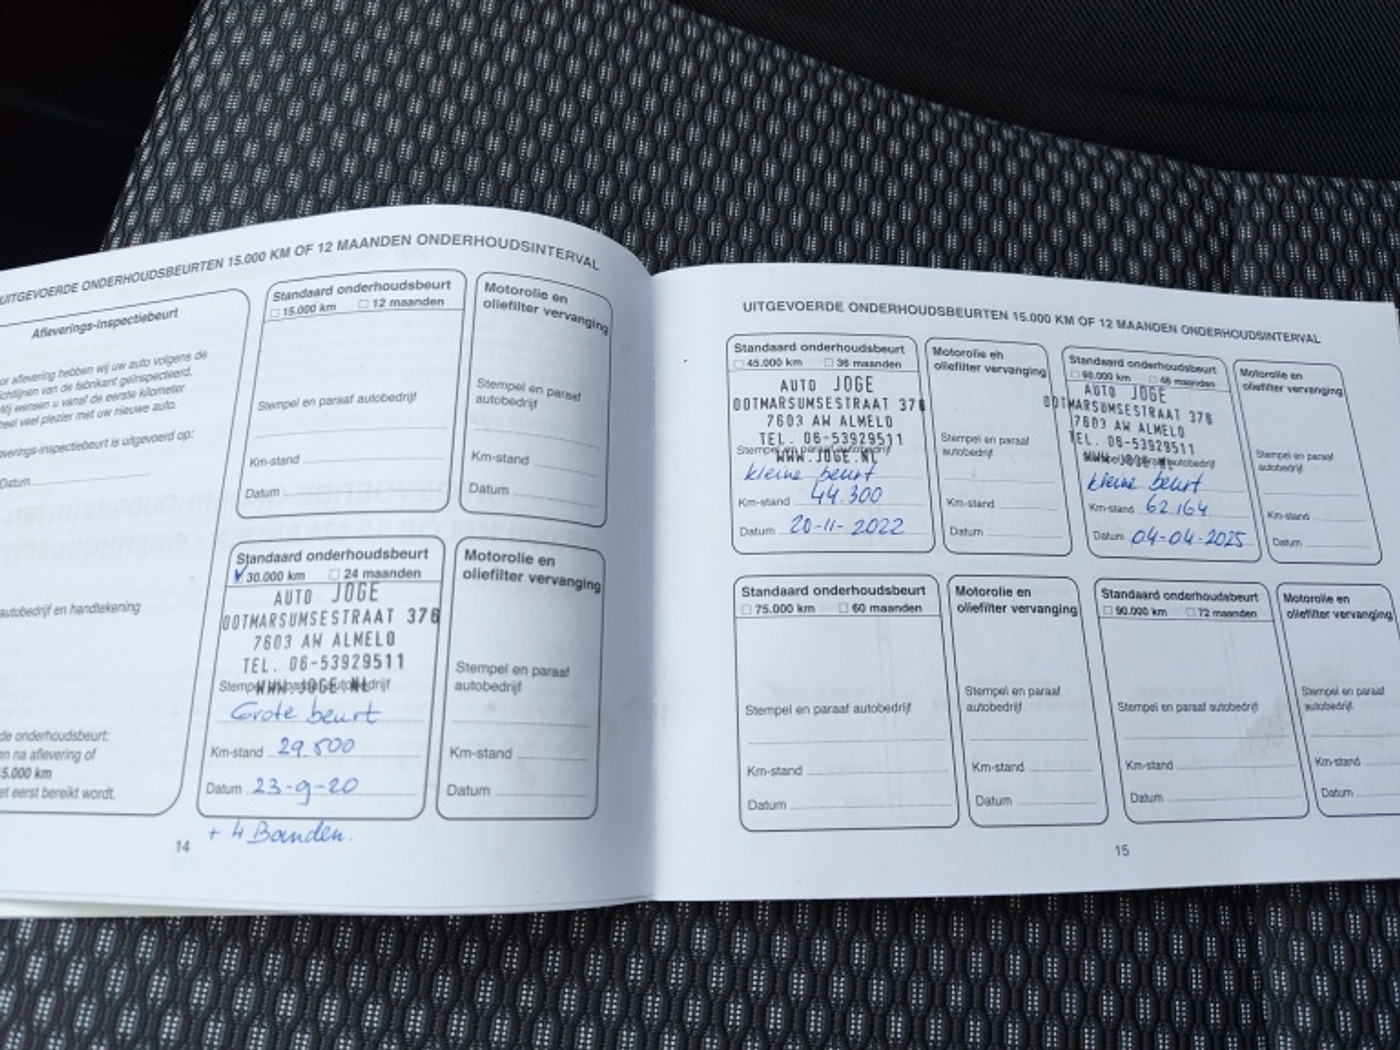 UITGEVOERDE ONDERHOUDSBEURTEN 15.000 KM OF 12 MAANDEN ONDERHOUDSINTERVAL
Afleverings-inspectiebeurt
aflevering hebben wij uw auto volgens de
van de fabrikant geïnspecteerd.
Wij wensen u vanaf de eerste kilometer
veel plezier met uw nieuwe auto.
inspectiebeurt is uitgevoerd op:
Datum
autobedrijf en handtekening
onderhoudsbeurt:
na aflevering of
5.000 km
eerst bereikt wordt.
Standaard onderhoudsbeurt
15.000 km 12 maanden
Stempel en paraaf autobedrijf
Km-stand
Datum
Motorolie en
oliefilter vervanging
Stempel en paraaf
autobedrijf
Km-stand
Datum
Standaard onderhoudsbeurt
30.000 km 24 maanden
AUTO JOGE
OOTMARSUMSESTRAAT 376
7603 AW ALMELO
TEL. 06-53929511
WWW.JOGE.NL
Stempel en paraaf autobedrijf
Grote beurt
Km-stand 29.500
Datum 23-9-20
+ 4 Banden.
Motorolie en
oliefilter vervanging
Stempel en paraaf
autobedrijf
Km-stand
Datum
14
UITGEVOERDE ONDERHOUDSBEURTEN 15.000 KM OF 12 MAANDEN ONDERHOUDSINTERVAL
Standaard onderhoudsbeurt
45.000 km 36 maanden
AUTO JOGE
OOTMARSUMSESTRAAT 376
7603 AW ALMELO
TEL. 06-53929511
Stempel en paraaf autobedrijf
WWW.JOGE.NL
kleine beurt
Km-stand 44.300
Datum 20-11-2022
Motorolie en
oliefilter vervanging
Stempel en paraaf
autobedrijf
Km-stand
Datum
Standaard onderhoudsbeurt
60.000 km 48 maanden
AUTO JOGE
OOTMARSUMSESTRAAT 376
7603 AW ALMELO
TEL. 06-53929511
WWW.JOGE.NL
Stempel en paraaf autobedrijf
kleine beurt
Km-stand 62.164
Datum 04-04-2025
Motorolie en
oliefilter vervanging
Stempel en paraaf
autobedrijf
Km-stand
Datum
Standaard onderhoudsbeurt
75.000 km 60 maanden
Stempel en paraaf autobedrijf
Km-stand
Datum
Motorolie en
oliefilter vervanging
Stempel en paraaf
autobedrijf
Km-stand
Datum
Standaard onderhoudsbeurt
90.000 km 72 maanden
Stempel en paraaf autobedrijf
Km-stand
Datum
Motorolie en
oliefilter vervanging
Stempel en paraaf
autobedrijf
Km-stand
Datum
15